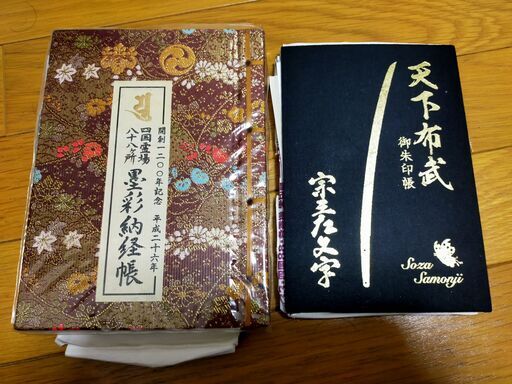 開創一二〇〇年記念　平成二十六年
四国霊場
八十八ヶ所
墨彩納経帳
天下布武
御朱印帳
宗三左文字
Soza
Samonji